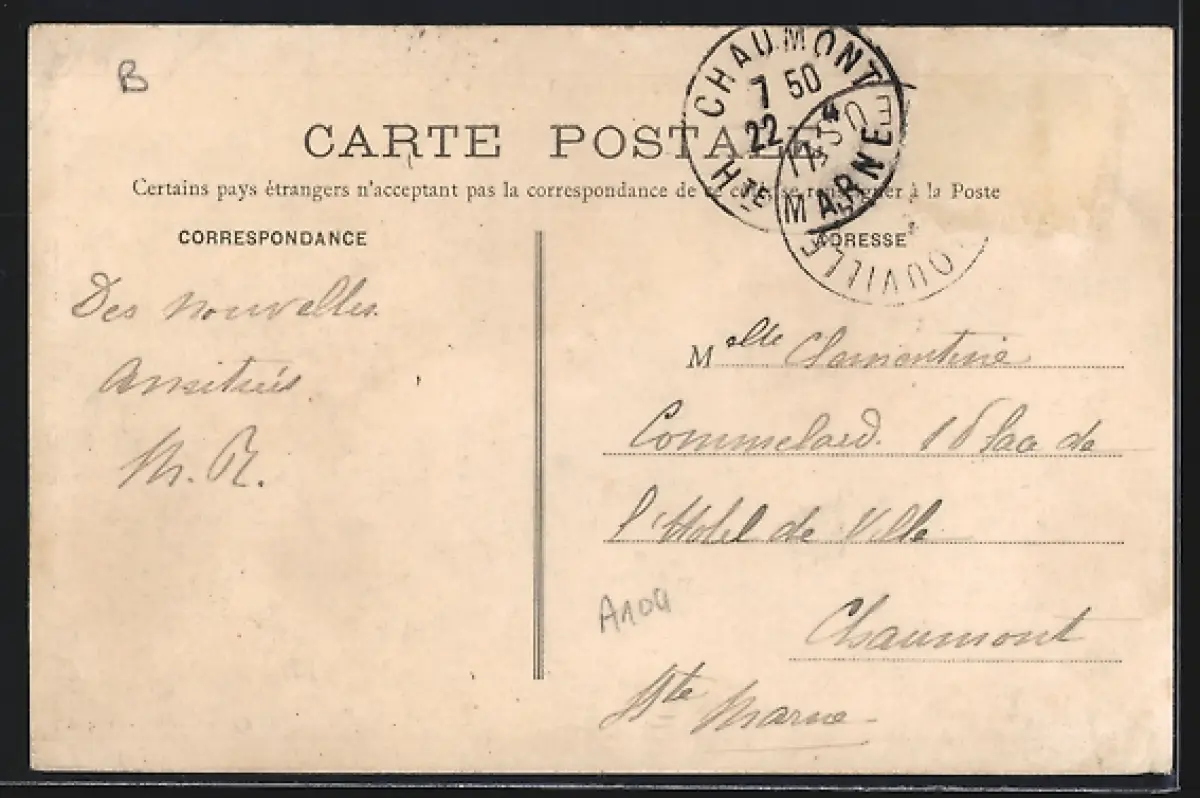 B
CARTE POSTALE
Certains pays étrangers n'acceptant pas la correspondance de ce côté, se renseigner à la Poste
CHAUMONT
7 50
22
Hte MARNE
OUVILLE
CORRESPONDANCE
ADRESSE
Des nouvelles
Amitiés
M. R.
Melle Clementine
Commelard. 1 Place de
l'Hotel de Ville
Chaumont
Hte Marne
A104